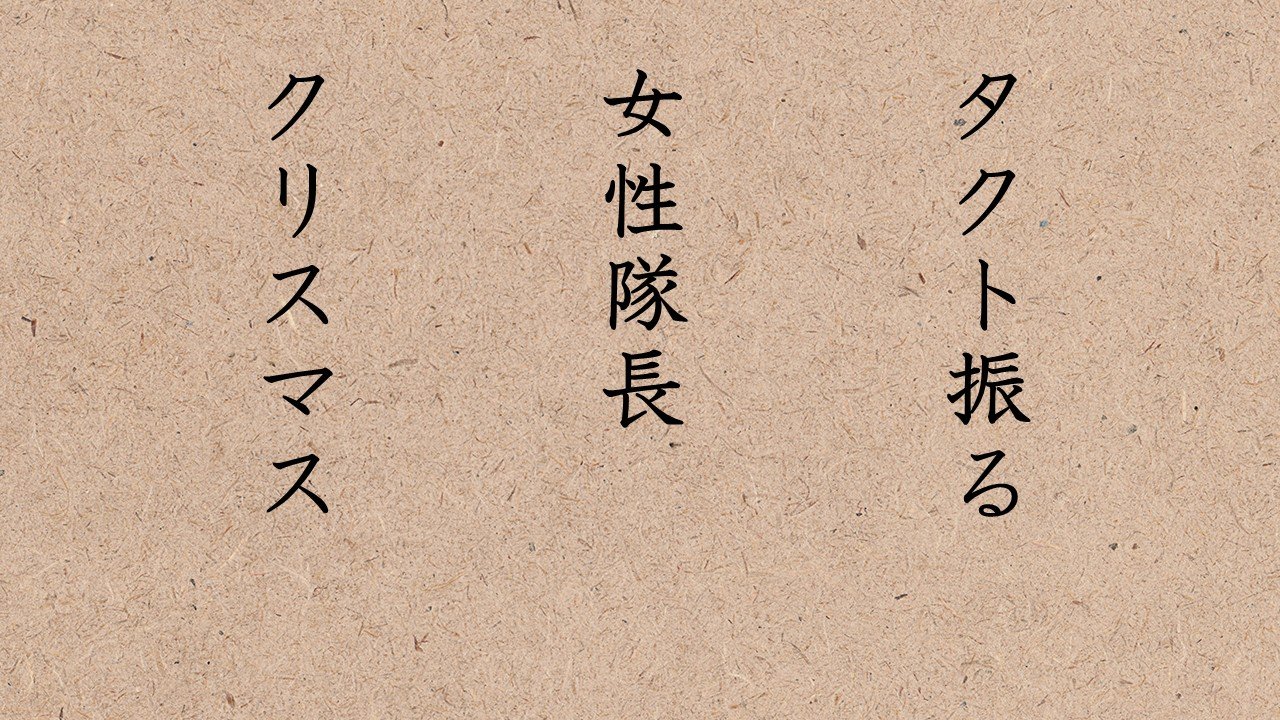 タクト振る
女性隊長
クリスマス